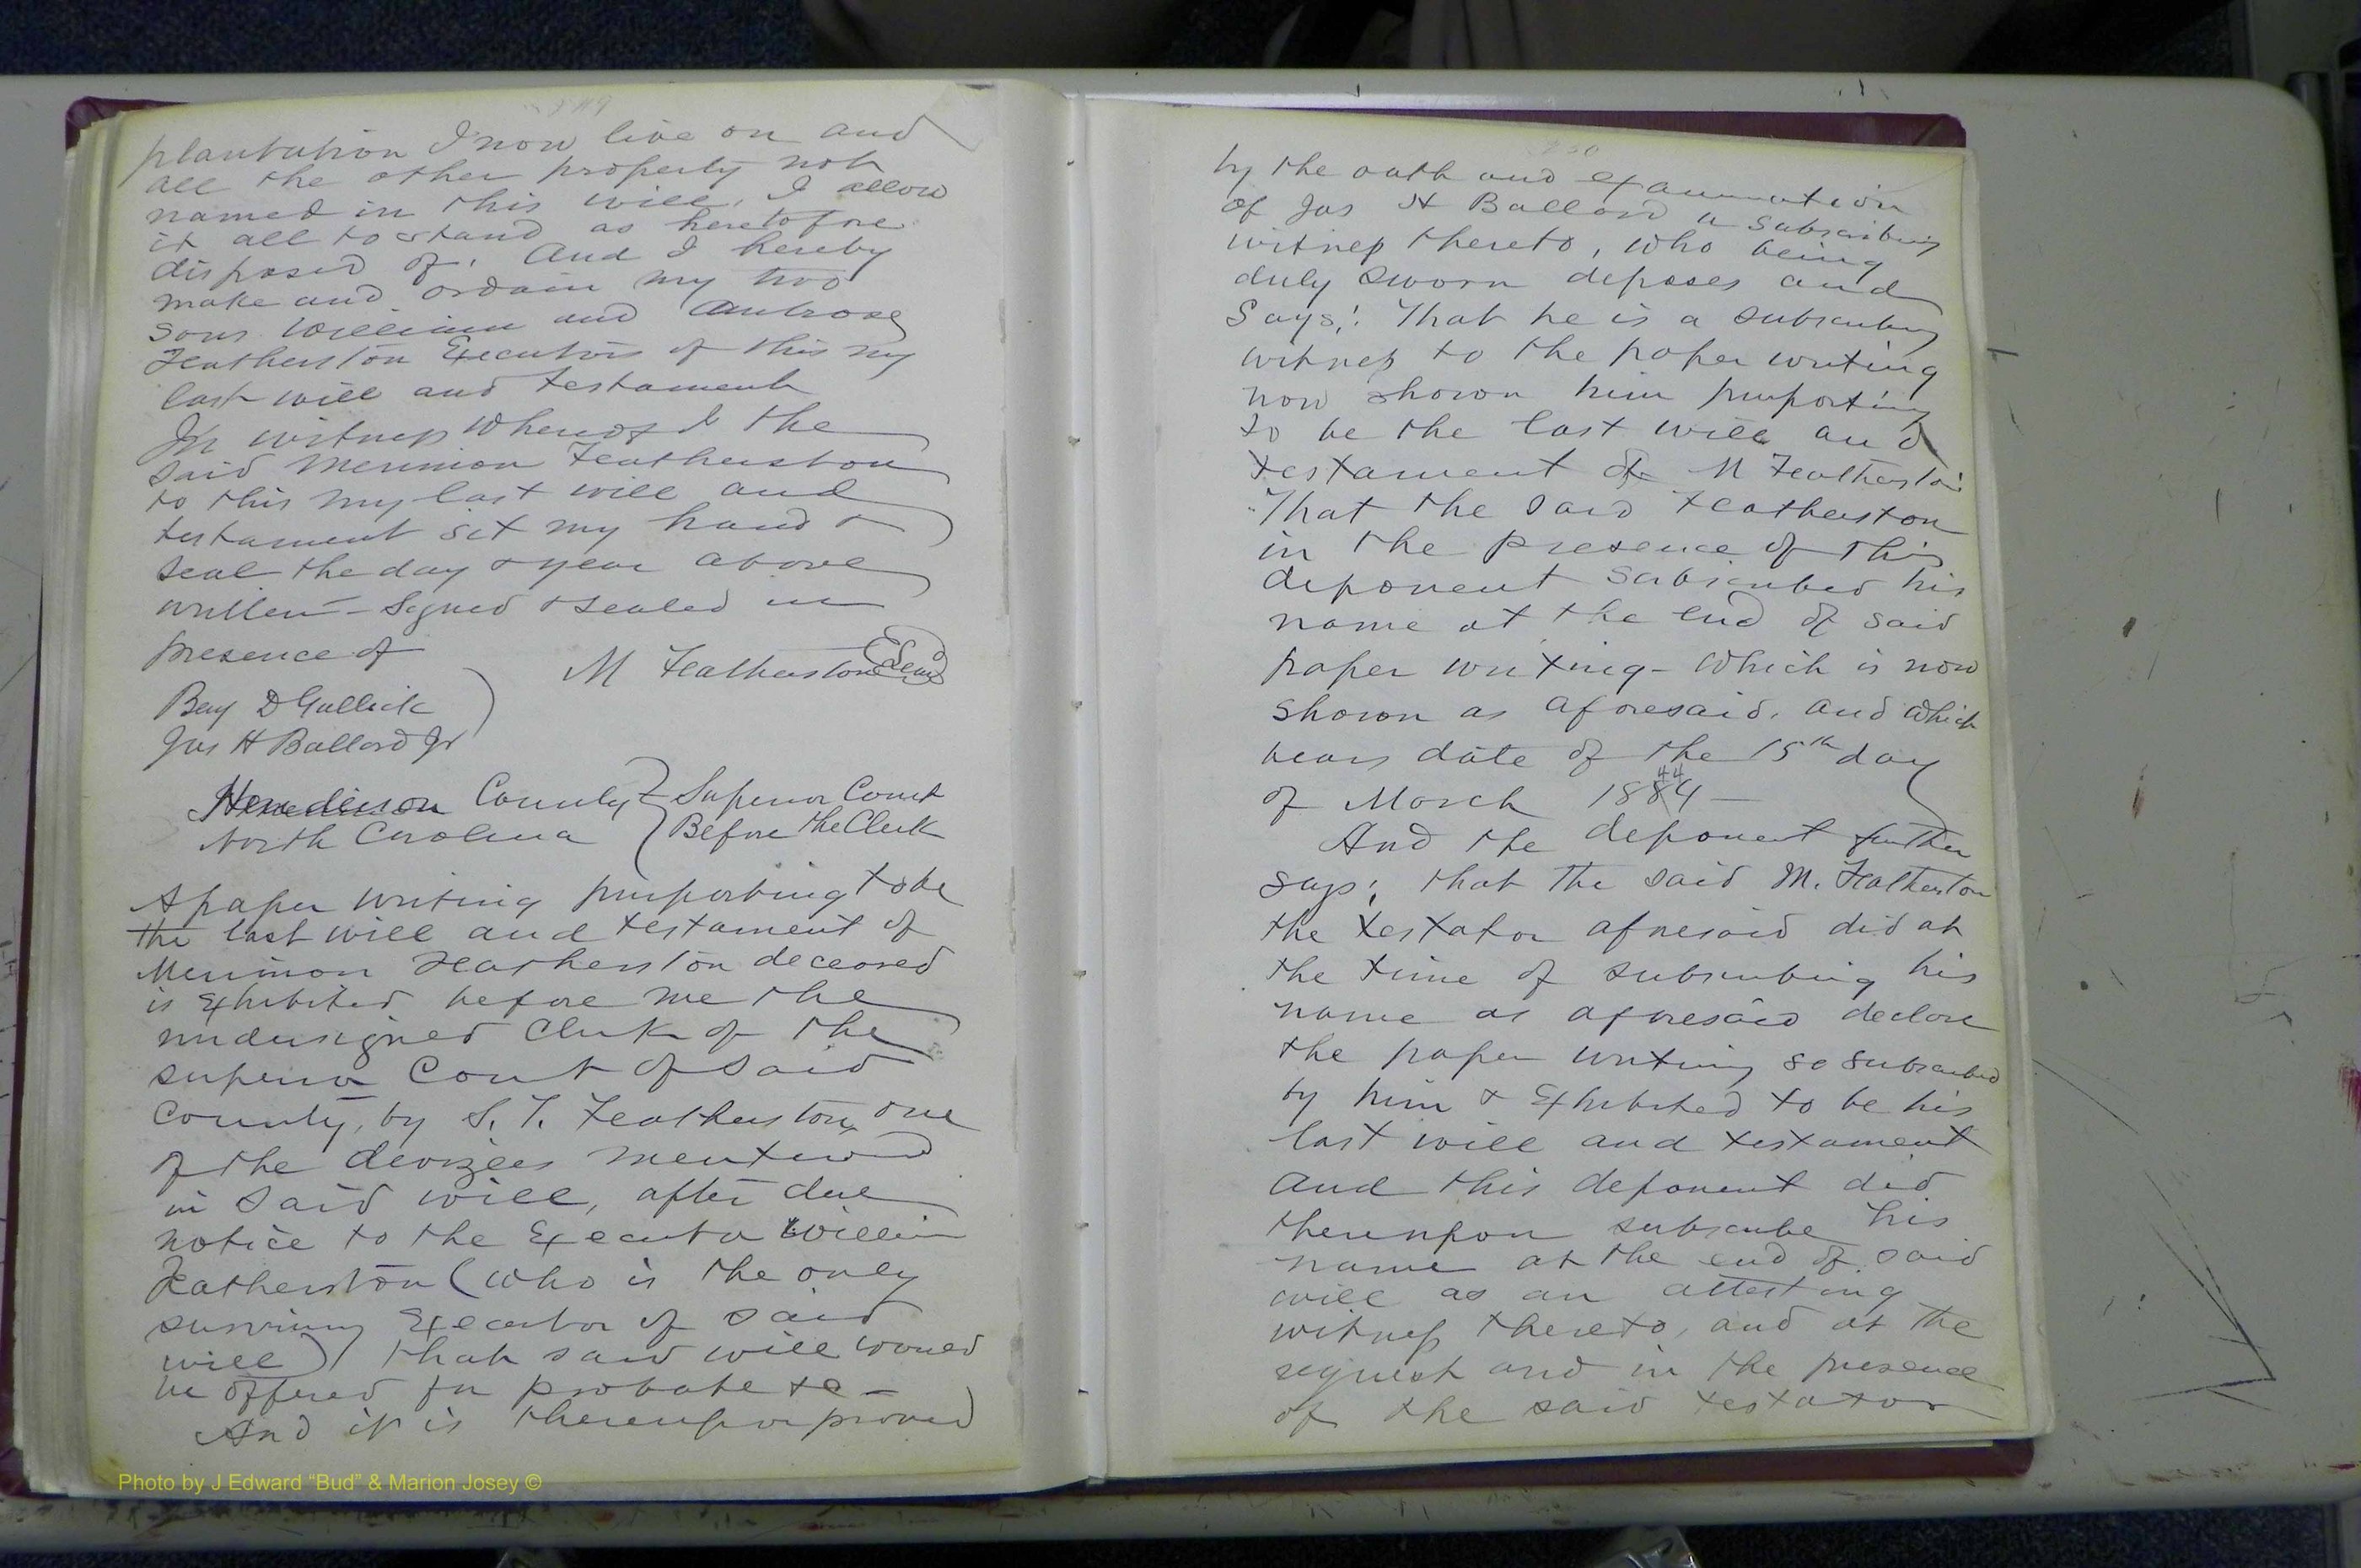 plantation I now live on and
all the other property not
named in this will, I allow
it all to stand as heretofore
disposed of. And I hereby
make and ordain my two
sons William and Ambrose
Featherston Executors of this my
last will and testament
In witness whereof I the
said Merimon Featherston
to this my last will and
testament set my hand &
seal the day & year above
written - Signed & sealed in
presence of
M Featherston Seal
Benj D Gullick
Jas H Ballard Jr
Henderson County Superior Court
North Carolina Before the Clerk
A paper writing purporting to be
the last will and testament of
Merimon Featherston deceased
is Exhibited before me the
undersigned Clerk of the
superior Court of said
County, by S. T. Featherston, one
of the devizees mentioned
in said will, after due
notice to the Executor William
Featherston (who is the only
surviving Executor of said
will) that said will would
be offered for probate &c -
And it is thereupon proved
by the oath and examination
of Jas H Ballard a subscribing
witness thereto, who being
duly sworn deposes and
Says; That he is a subscribing
witness to the paper writing
now shown him purporting
to be the last will and
testament of M Featherston
That the said Featherston
in the presence of this
deponent subscribed his
name at the end of said
paper writing - which is now
shown as aforesaid. and which
bears date of the 15th day
44
of March 1884 -
And the deponent further
says; that the said M. Featherston
the testator aforesaid did at
the time of subscribing his
name as aforesaid declare
the paper writing so subscribed
by him & Exhibited to be his
last will and testament
and this deponent did
thereupon subscribe his
name at the end of said
will as an attesting
witness thereto, and at the
request and in the presence
of the said testator
Photo by J Edward “Bud” & Marion Josey ©